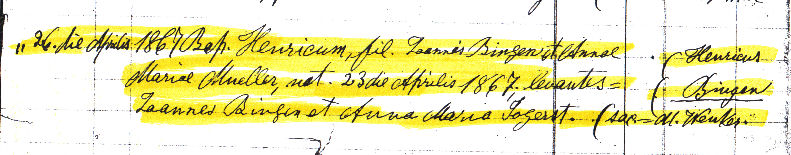 " 26. die Aprilis 1867 Bap. Henricum, fil. Joannis Bingen et Annae ( Henricus
Mariae Mueller, nat. 23 die Aprilis 1867. levantes = ( Bingen
Joannes Bingen et Anna Maria Jogerst. ( sac =